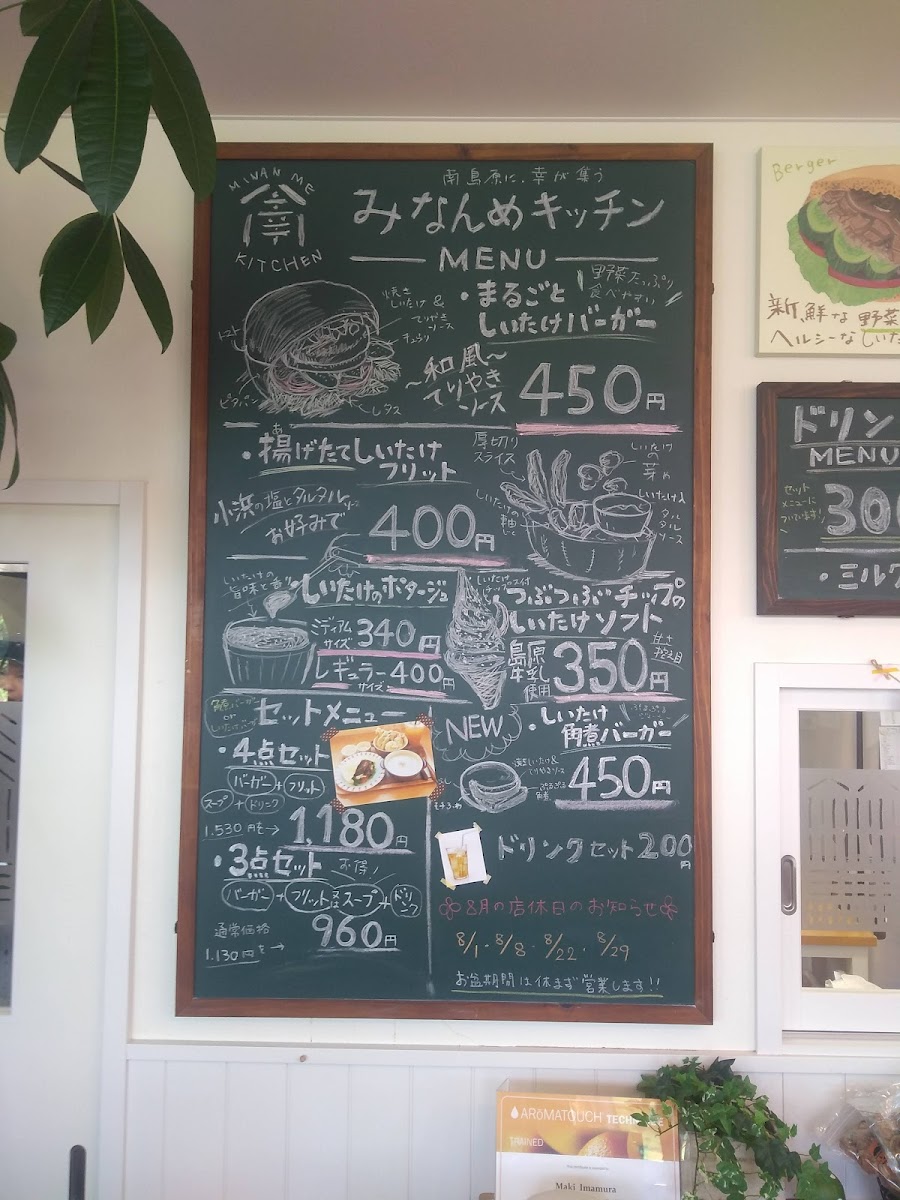 MINAN ME
KITCHEN
南島原に、幸が集う
みなんめキッチン
MENU
野菜たっぷり
食べやすい
・まるごと
しいたけバーガー
焼き
しいたけ&
てりやき
ソース
キュウリ
トマト
ピタパン
レタス
~和風~
てりやき
ソース
450円
・揚げたてしいたけ
あ
フリット
小浜の塩とタルタルソースで
お好みで
400円
厚切り
スライス
しいたけ
の芽
しいたけの
軸
しいたけ入
タル
タル
ソース
しいたけの
旨味と香り
・しいたけのポタージュ
ミディアム
サイズ 340円
レギュラー 400円
サイズ
しいたけ
チップ
つぶつぶチップの
しいたけソフト
島原
牛乳
使用
350円
甘さ
控え目
角煮バーガー
or
しいたけバーガー
セットメニュー
・4点セット
バーガー + フリット
スープ + ドリンク
1.530円を→
1,180円
・3点セット お得!
バーガー + フリット又はスープ + ドリンク
通常価格
1.130円を→
960円
NEW
・しいたけ
角煮バーガー
450円
ドリンクセット200円
8月の店休日のお知らせ
8/1・8/8・8/22・8/29
お盆期間は休まず営業します!!
Berger
新鮮な野菜
ヘルシーなしいた
ドリン
MENU
セット
メニューに
ついています!
300
・ミルク
AROMATOUCH TECHNIQUE
TRAINED
Maki Imamura